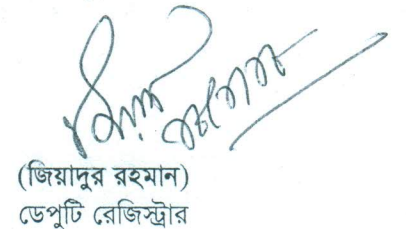 (জিয়াদুর রহমান)
ডেপুটি রেজিস্ট্রার